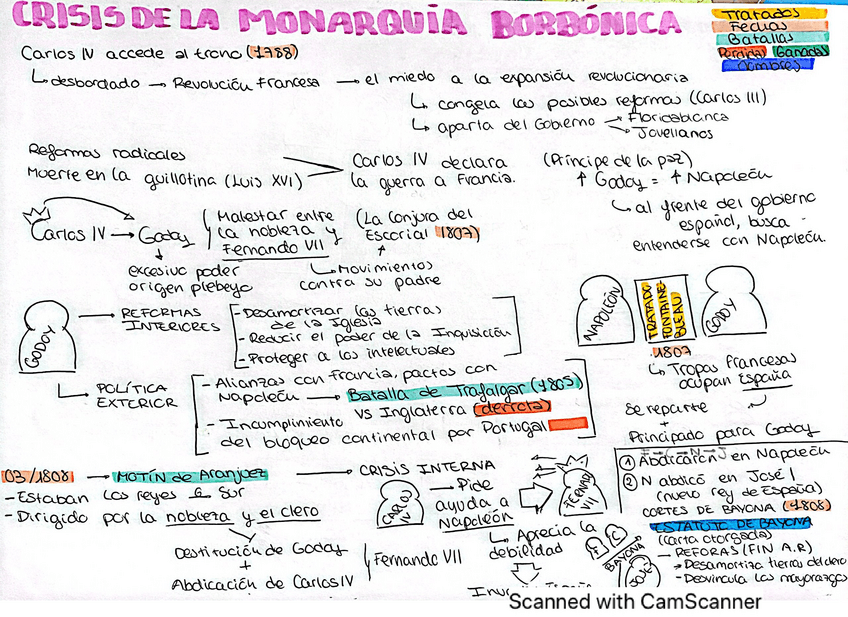 CRISIS DE LA MONARQUÍA BORBÓNICA
Tratados
Fechas
Batallas
Perdidas Ganadas
Nombres
Carlos IV accede al trono (1788)
desbordado → Revolución Francesa → el miedo a la expansión revolucionaria
congela las posibles reformas (Carlos III)
aparta del Gobierno → Floridablanca
Jovellanos
Reformas radicales
Muerte en la guillotina (Luis XVI)
Carlos IV declara
la guerra a Francia.
(Príncipe de la paz)
↑ Godoy = ↑ Napoleón
al frente del gobierno
español, busca
entenderse con Napoleón.
Carlos IV → Godoy
excesivo poder
origen plebeyo
Malestar entre
la nobleza y
Fernando VII
(La Conjura del
Escorial 1807)
Movimientos
contra su padre
GODOY
→ REFORMAS
INTERIORES
- Desamortizar las tierras
de la Iglesia
- Reducir el poder de la Inquisición
- Proteger a los intelectuales
POLÍTICA
EXTERIOR
- Alianzas con Francia, pactos con
Napoleón → Batalla de Trafalgar (1805)
vs Inglaterra (derrota)
- Incumplimiento
del bloqueo continental por Portugal
NAPOLEÓN
TRATADO
FONTAINE
BLEAU
GODOY
1807
Tropas francesas
ocupan España
Se reparte
+
Principado para Godoy
03/1808 → MOTÍN de Aranjuez → CRISIS INTERNA
- Estaban los reyes Sur
- Dirigido por la nobleza y el clero
Destitución de Godoy
+
Abdicación de Carlos IV
Fernando VII
CARLOS
IV
→ Pide
ayuda a
Napoleón
FERNAN
VII
Aprecia la
debilidad
F
C
BAYONA
JOSÉ I
① Abdicaron en Napoleón
② N abdicó en José I
(nuevo rey de España)
CORTES DE BAYONA (1808)
ESTATUTO DE BAYONA
(carta otorgada)
- REFORAS (FIN A.R)
→ Desamortiza tierra del clero
- Desvincula los mayorazgos
Scanned with CamScanner